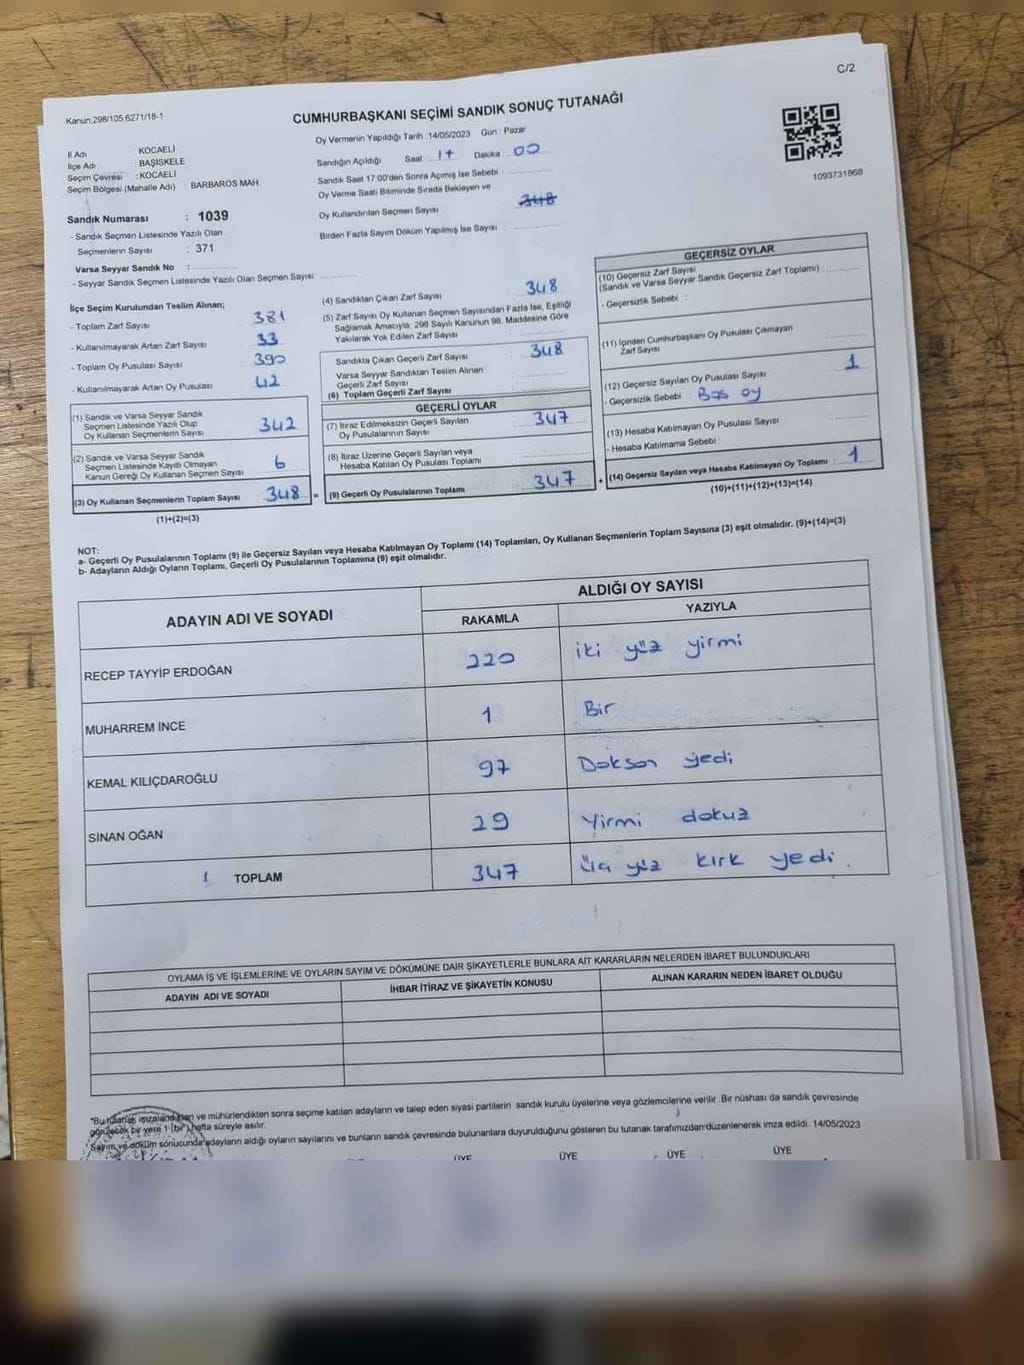 C/2
Kanun,298/105.6271/18-1
CUMHURBAŞKANI SEÇİMİ SANDIK SONUÇ TUTANAĞI
İl Adı : KOCAELİ
İlçe Adı : BAŞİSKELE
Seçim Çevresi : KOCAELİ
Seçim Bölgesi (Mahalle Adı) BARBAROS MAH.
Sandık Numarası : 1039
- Sandık Seçmen Listesinde Yazılı Olan
Seçmenlerin Sayısı : 371
Varsa Seyyar Sandık No :
- Seyyar Sandık Seçmen Listesinde Yazılı Olan Seçmen Sayısı:
Oy Vermenin Yapıldığı Tarih :14/05/2023 Gün : Pazar
Sandığın Açıldığı Saat 17 Dakika 00
Sandık Saat 17:00'den Sonra Açımış İse Sebebi
Oy Verme Saati Bitiminde Sırada Bekleyen ve
Oy Kullandırılan Seçmen Sayısı 348
Birden Fazla Sayım Döküm Yapılmış İse Sayısı :
1093731868
İlçe Seçim Kurulundan Teslim Alınan;
- Toplam Zarf Sayısı 381
- Kullanılmayarak Artan Zarf Sayısı 33
- Toplam Oy Pusulası Sayısı 390
- Kullanılmayarak Artan Oy Pusulası 42
(1) Sandık ve Varsa Seyyar Sandık
Seçmen Listesinde Yazılı Olup
Oy Kullanan Seçmenlerin Sayısı 342
(2) Sandık ve Varsa Seyyar Sandık
Seçmen Listesinde Kayıtlı Olmayan
Kanun Gereği Oy Kullanan Seçmen Sayısı 6
(3) Oy Kullanan Seçmenlerin Toplam Sayısı 348 =
(1)+(2)=(3)
(4) Sandıktan Çıkan Zarf Sayısı 348
(5) Zarf Sayısı Oy Kullanan Seçmen Sayısından Fazla İse, Eşitliği
Sağlamak Amacıyla; 298 Sayılı Kanunun 98. Maddesine Göre
Yakılarak Yok Edilen Zarf Sayısı
Sandıkta Çıkan Geçerli Zarf Sayısı 348
Varsa Seyyar Sandıktan Teslim Alınan
Geçerli Zarf Sayısı
(6) Toplam Geçerli Zarf Sayısı
GEÇERLİ OYLAR
(7) İtiraz Edilmeksizin Geçerli Sayılan
Oy Pusulalarının Sayısı 347
(8) İtiraz Üzerine Geçerli Sayılan veya
Hesaba Katılan Oy Pusulası Toplamı
(9) Geçerli Oy Pusulalarının Toplamı 347 +
GEÇERSİZ OYLAR
(10) Geçersiz Zarf Sayısı
(Sandık ve Varsa Seyyar Sandık Geçersiz Zarf Toplamı) :
- Geçersizlik Sebebi :
(11) İçinden Cumhurbaşkanı Oy Pusulası Çıkmayan
Zarf Sayısı
(12) Geçersiz Sayılan Oy Pusulası Sayısı 1
- Geçersizlik Sebebi : Boş oy
(13) Hesaba Katılmayan Oy Pusulası Sayısı
- Hesaba Katılmama Sebebi :
(14) Geçersiz Sayılan veya Hesaba Katılmayan Oy Toplamı : 1
(10)+(11)+(12)+(13)=(14)
NOT:
a- Geçerli Oy Pusulalarının Toplamı (9) ile Geçersiz Sayılan veya Hesaba Katılmayan Oy Toplamı (14) Toplamları, Oy Kullanan Seçmenlerin Toplam Sayısına (3) eşit olmalıdır. (9)+(14)=(3)
b- Adayların Aldığı Oyların Toplamı, Geçerli Oy Pusulalarının Toplamına (9) eşit olmalıdır.
ADAYIN ADI VE SOYADI ALDIĞI OY SAYISI
RAKAMLA YAZIYLA
RECEP TAYYİP ERDOĞAN 220 iki yüz yirmi
MUHARREM İNCE 1 Bir
KEMAL KILIÇDAROĞLU 97 Doksan yedi
SİNAN OĞAN 29 Yirmi dokuz
TOPLAM 347 Üç yüz kırk yedi.
OYLAMA İŞ VE İŞLEMLERİNE VE OYLARIN SAYIM VE DÖKÜMÜNE DAİR ŞİKAYETLERLE BUNLARA AİT KARARLARIN NELERDEN İBARET BULUNDUKLARI
ADAYIN ADI VE SOYADI İHBAR İTİRAZ VE ŞİKAYETİN KONUSU ALINAN KARARIN NEDEN İBARET OLDUĞU
*Bu tutanak imzalandıktan ve mühürlendikten sonra seçime katılan adayların ve talep eden siyasi partilerin sandık kurulu üyelerine veya gözlemcilerine verilir .Bir nüshası da sandık çevresinde
görülecek bir yere 1 (bir) hafta süreyle asılır.
Sayım ve döküm sonucunda adayların aldığı oyların sayılarını ve bunların sandık çevresinde bulunanlara duyurulduğunu gösteren bu tutanak tarafımızdan düzenlenerek imza edildi. 14/05/2023
ÜYE ÜYE ÜYE ÜYE